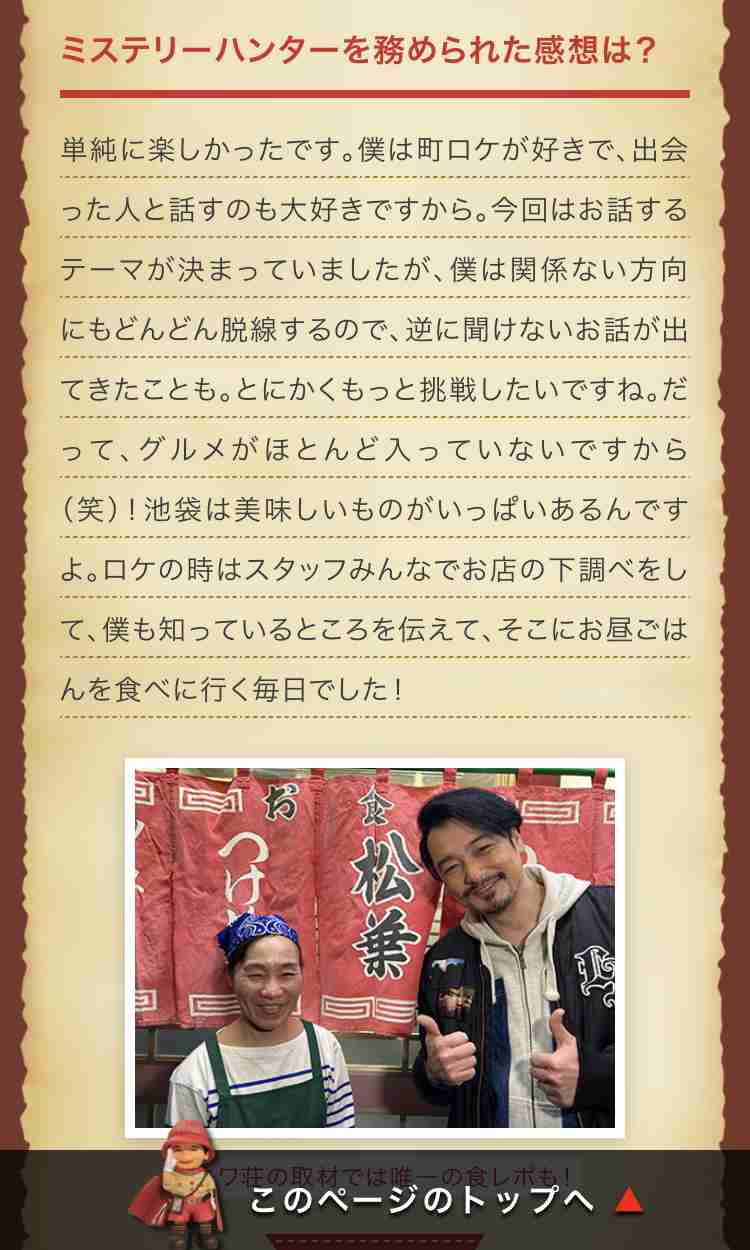 ミステリーハンターを務められた感想は？
単純に楽しかったです。僕は町ロケが好きで、出会
った人と話すのも大好きですから。今回はお話する
テーマが決まっていましたが、僕は関係ない方向
にもどんどん脱線するので、逆に聞けないお話が出
てきたことも。とにかくもっと挑戦したいですね。だ
って、グルメがほとんど入っていないですから
（笑）！池袋は美味しいものがいっぱいあるんです
よ。ロケの時はスタッフみんなでお店の下調べをし
て、僕も知っているところを伝えて、そこにお昼ごは
んを食べに行く毎日でした！
お
つけ
食
松葉
ワ荘の取材では唯一の食レポも！
このページのトップへ ▲